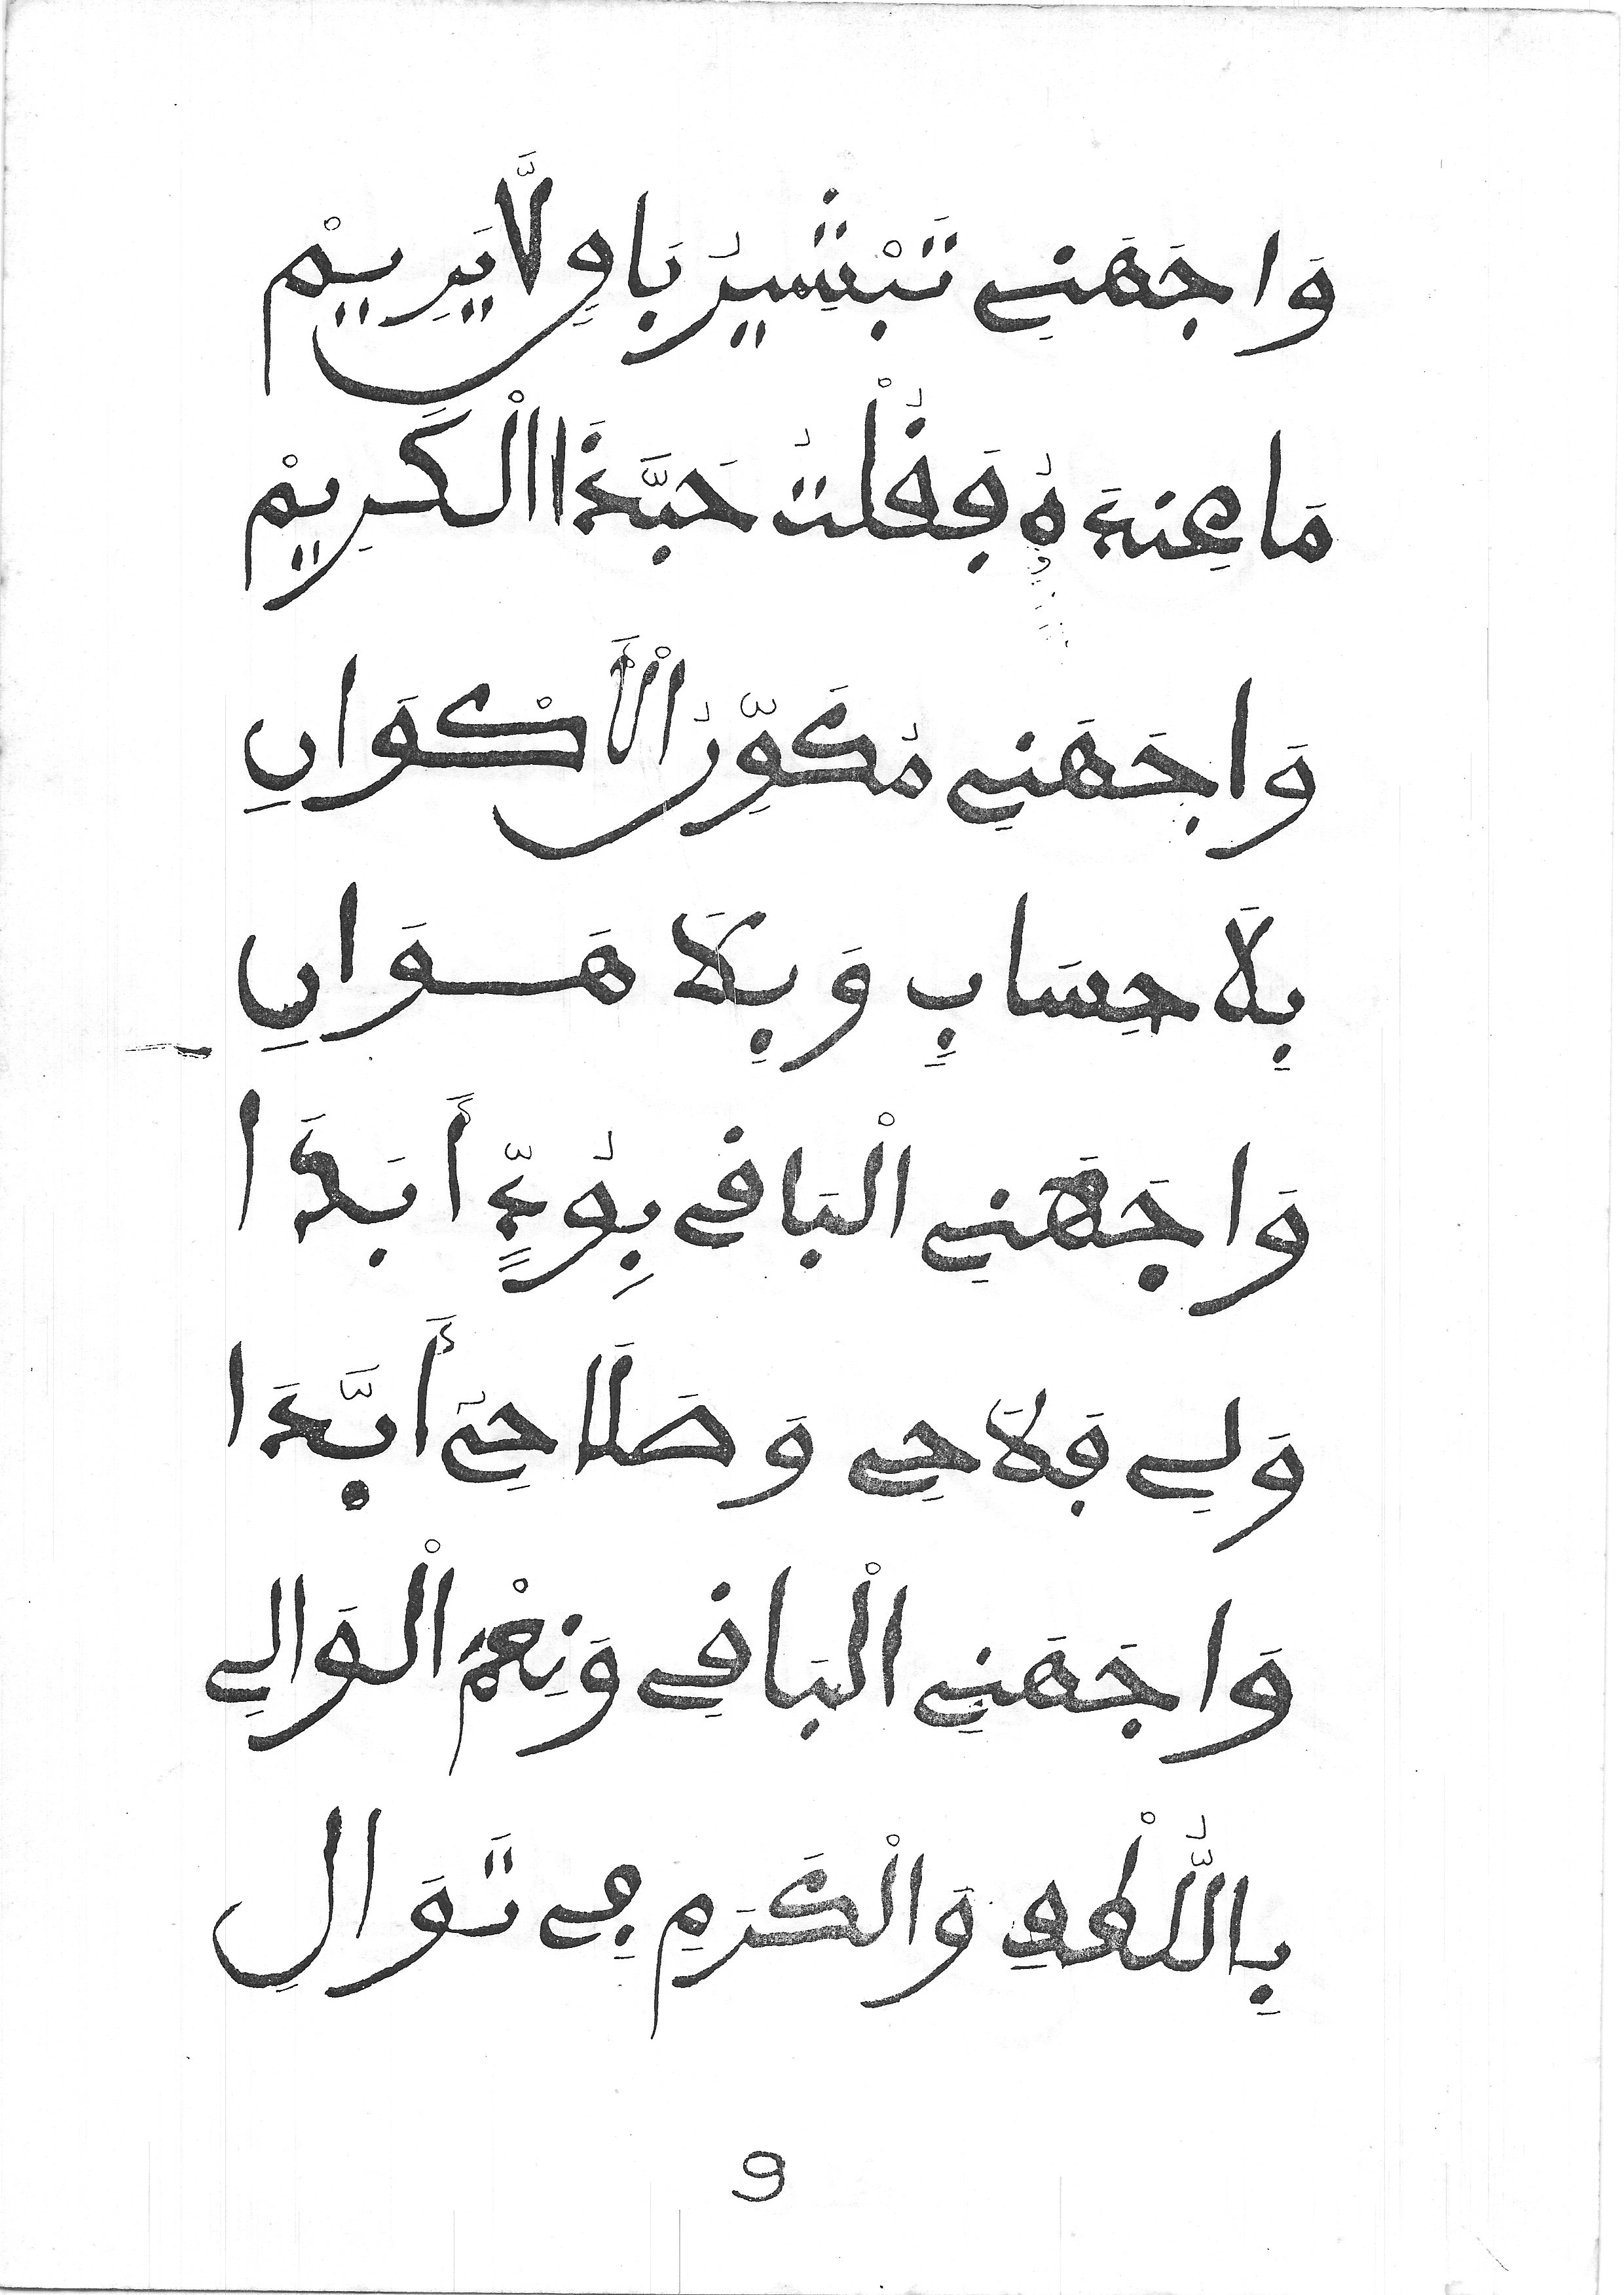 وَاجَهَنِي تَبْشِيرُ بَاقٍ لَّا يَرِيمْ
مَا عِندَهُ فَقُلْتُ حَبَّذَا الْكَرِيمْ
وَاجَهَنِي مُكَوِّنُ الْأَكْوَانِ
بِلَا حِسَابٍ وَبِلَا هَوَانِ
وَاجَهَنِي الْبَاقِي بِوُدٍّ أَبَدَا
وَلِي فَلَاحِي وَصَلَاحِي أَبَّدَا
وَاجَهَنِي الْبَاقِي وَنِعْمَ الْوَالِي
بِاللُّطْفِ وَالْكَرَمِ فِي تَوَالِ
9